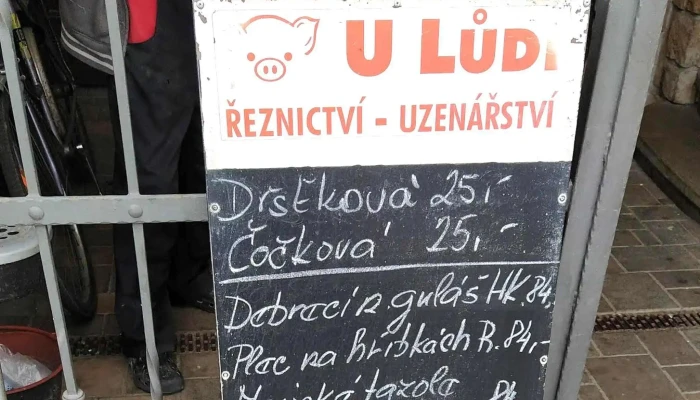 U LŮDI
ŘEZNICTVÍ - UZENÁŘSTVÍ
Drštková 25,-
Čočková 25,-
Debrecí n. guláš HK 84,
Plac na hribkách R. 84,-
fazole 84